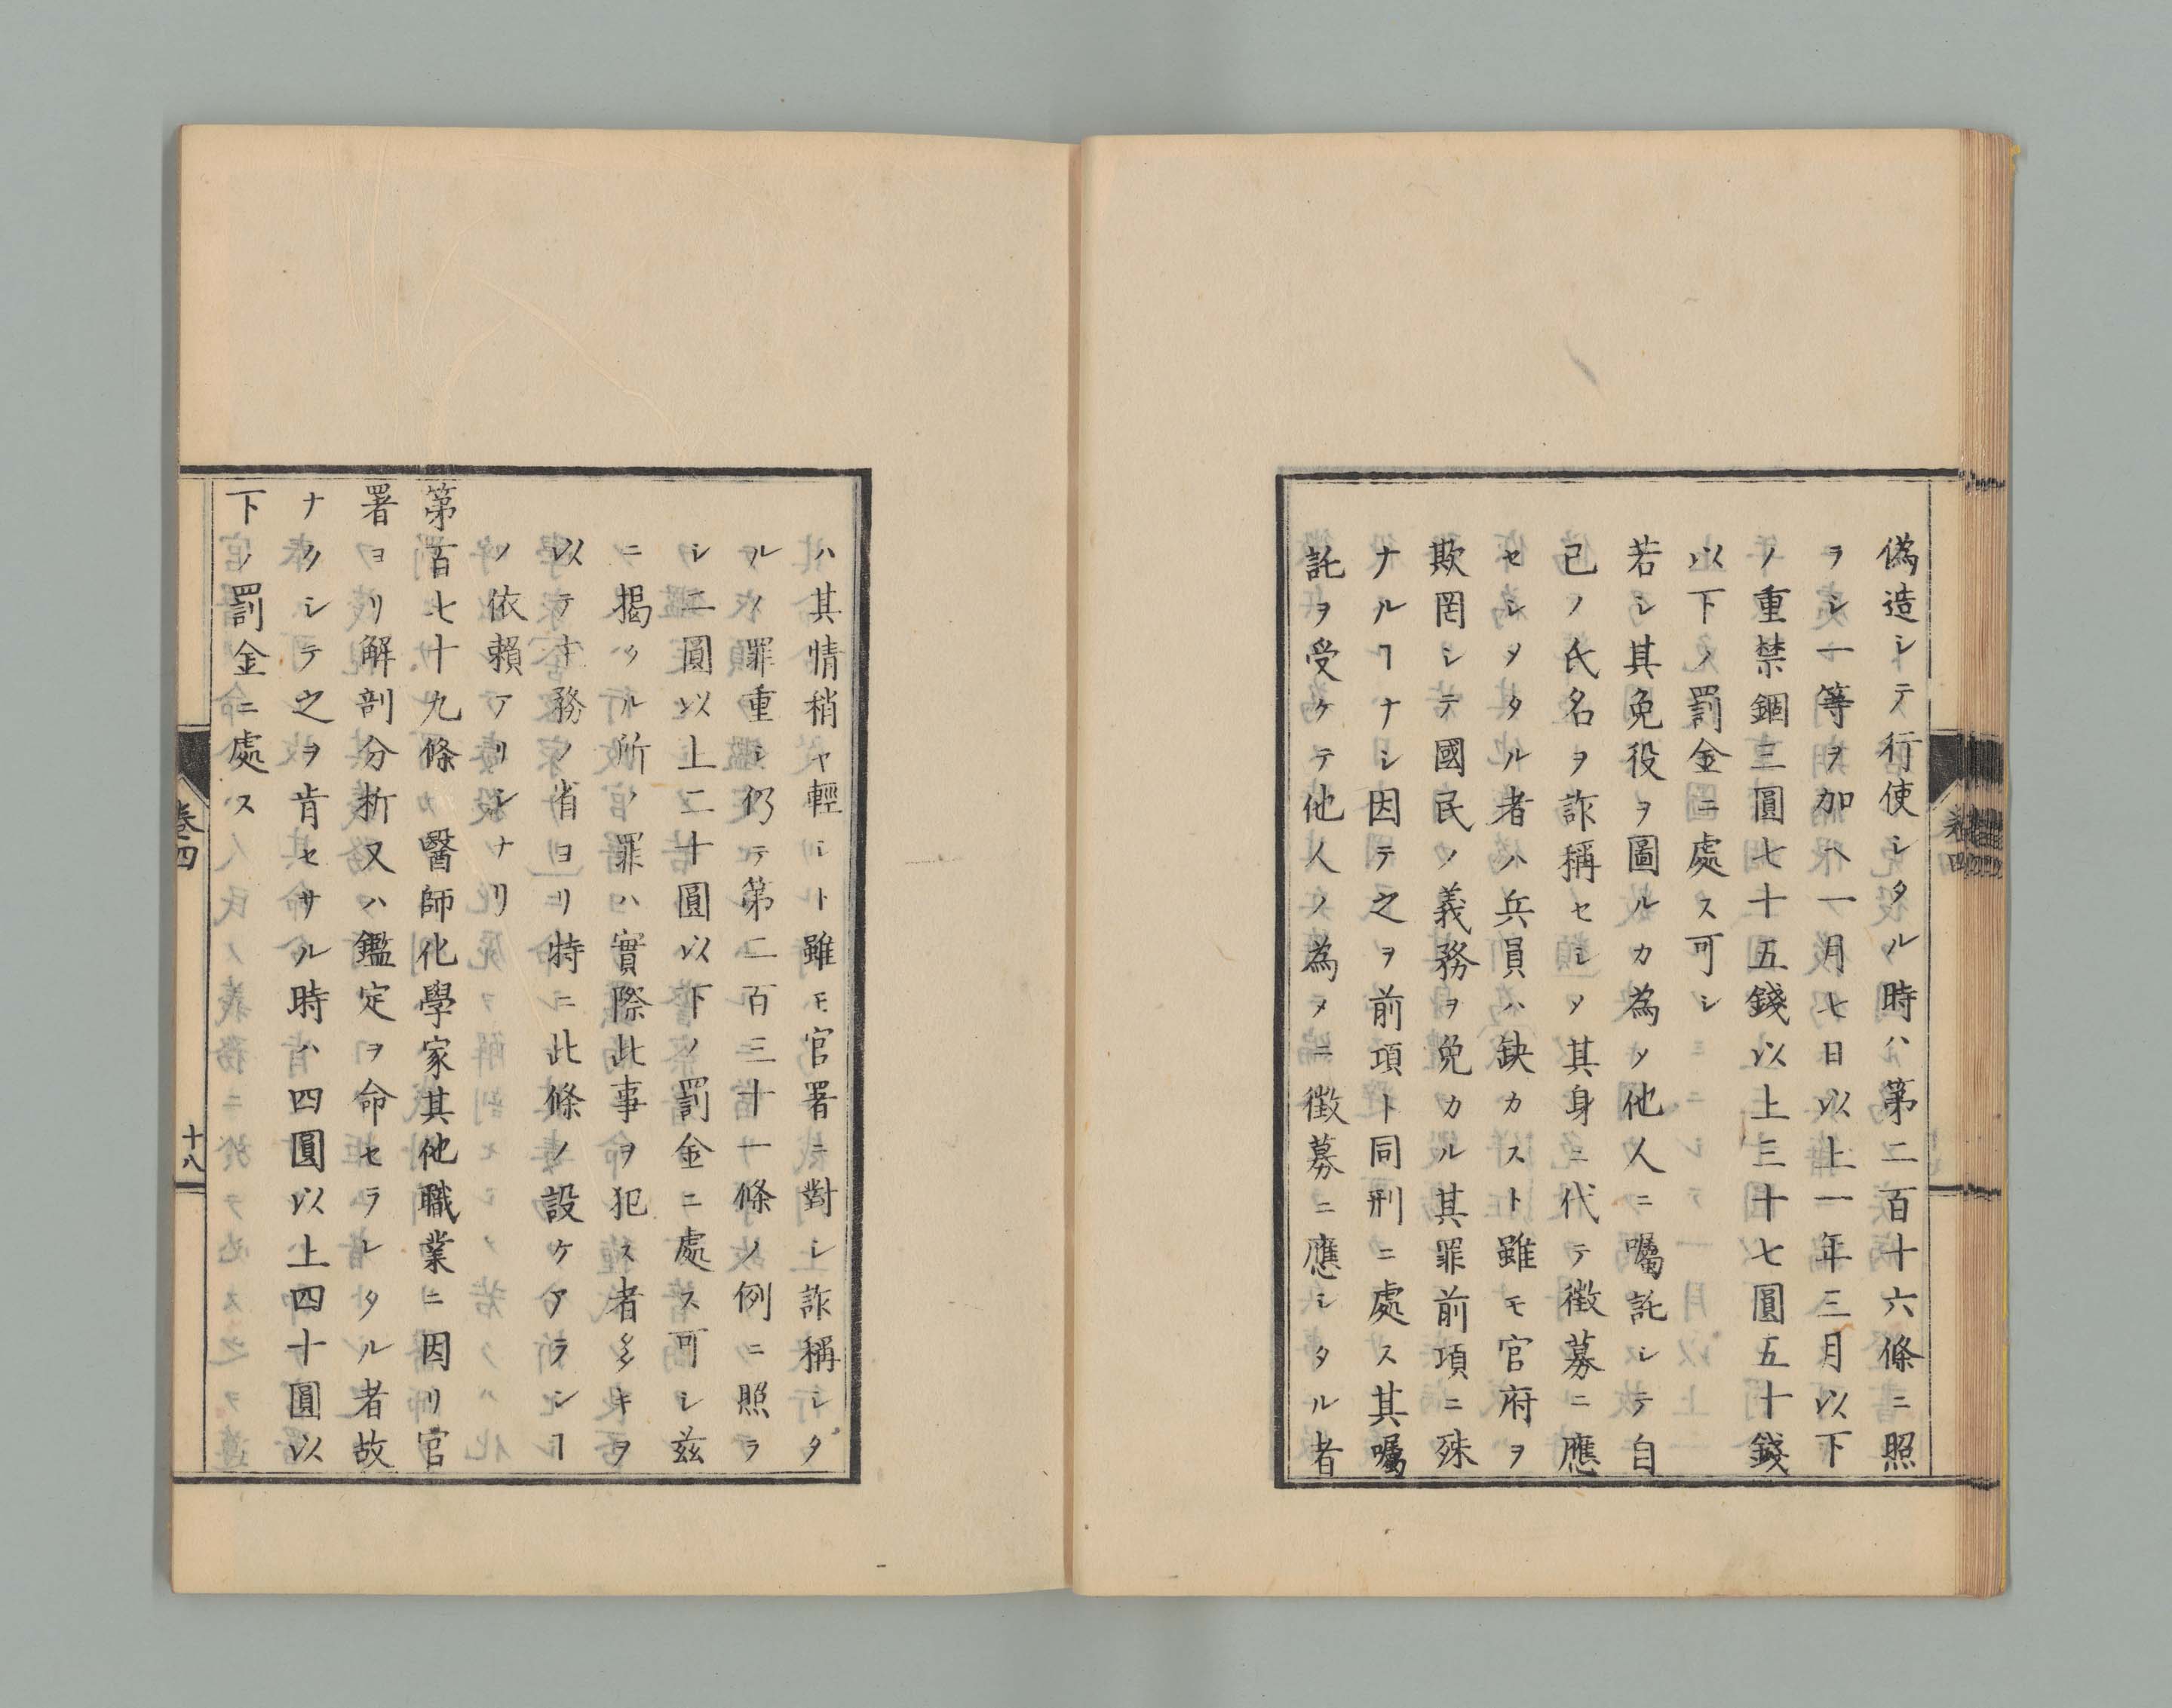 偽造シテ行使シタル時ハ第二百十六條ニ照
ヲシ一等ヲ加ヘ一月七日以上一年三月以下
ノ重禁錮三圓七十五錢以上三十七圓五十錢
以下ノ罰金ニ處ス可シ
若シ其免役ヲ圖ルカ為メ他人ニ囑託シテ自
己ノ氏名ヲ詐稱セシメ其身ニ代テ徴募ニ應
セシメタル者ハ兵員ハ缺カスト雖モ官府ヲ
欺罔シテ國民ノ義務ヲ免カル其罪前項ニ殊
ナルヿナシ因テ之ヲ前項ト同刑ニ處ス其囑
託ヲ受ケテ他人ノ為メニ徴募ニ應シタル者
ハ其情稍ヤ輕シト雖モ官署ニ對シ詐稱シタ
ルノ罪重シ仍テ第二百三十一條ノ例ニ照ラ
シ二圓以上二十圓以下ノ罰金ニ處ス可シ茲
ニ揭クル所ノ罪ハ實際此事ヲ犯ス者多キヲ
以テナ務ノ省ヨリ特ニ此條ノ設ケアランヿ
ノ依賴アリシナリ
第百七十九條 醫師化學家其他職業ニ因リ官
署ヨリ解剖分析又ハ鑑定ヲ命セラレタル者故
ナクシテ之ヲ肯セサル時ハ四圓以上四十圓以
下ノ罰金ニ處ス
卷四
十八